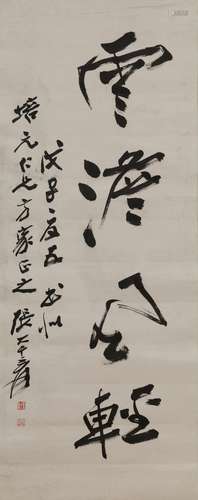 雲澹風輕
戊子夏五書似
培元仁兄方家正之 張大千爰